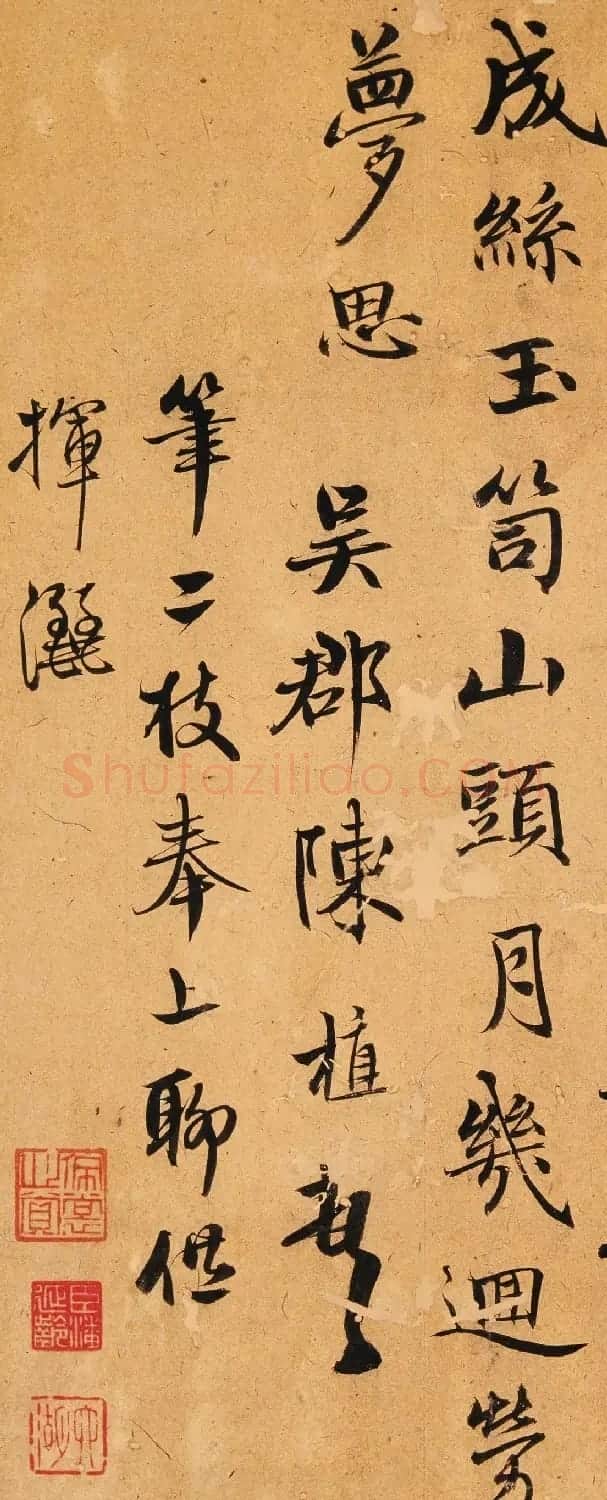 成絲玉笥山頭月幾迴勞
夢思 吳郡陳植
筆二枝奉上聊供
揮灑
Shufaziliao.COM